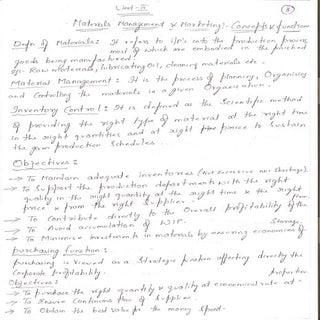 Unit-II
Materials Management & Marketing:- Concepts & functions
Defn. of Materials: It refers to i/p's into the production process
most of which are embodied in the finished
goods being manufactured.
eg:- Raw Materials, Lubricating Oil, cleaning materials etc.
Material Management: It is the process of planning, Organising
and Controlling the materials in a given Organisation.
Inventory Control: It is defined as the Scientific method
of providing the right type of material at the right time
in the right quantities and at right price to Sustain
the given production Schedules...
Objectives:
→ To Maintain adequate inventories (Not excessive nor Shortage).
→ To Support the production department with the right
quality in the right quantity at the right time & the right
price & from the right Supplier.
→ To Contribute directly to the Overall profitability of the firm.
→ To Avoid accumulation of W.I.P. Storage.
→ To Minimise investment in materials by ensuring economies of
Purchasing function:
Purchasing is viewed as a Strategic function affecting directly the
Corporate profitability.
Objectives:
→ To purchase the right quantity & quality at economical rate at
→ To Ensure Continuous flow of Supplies.
→ To Obtain the best value for the money Spent.